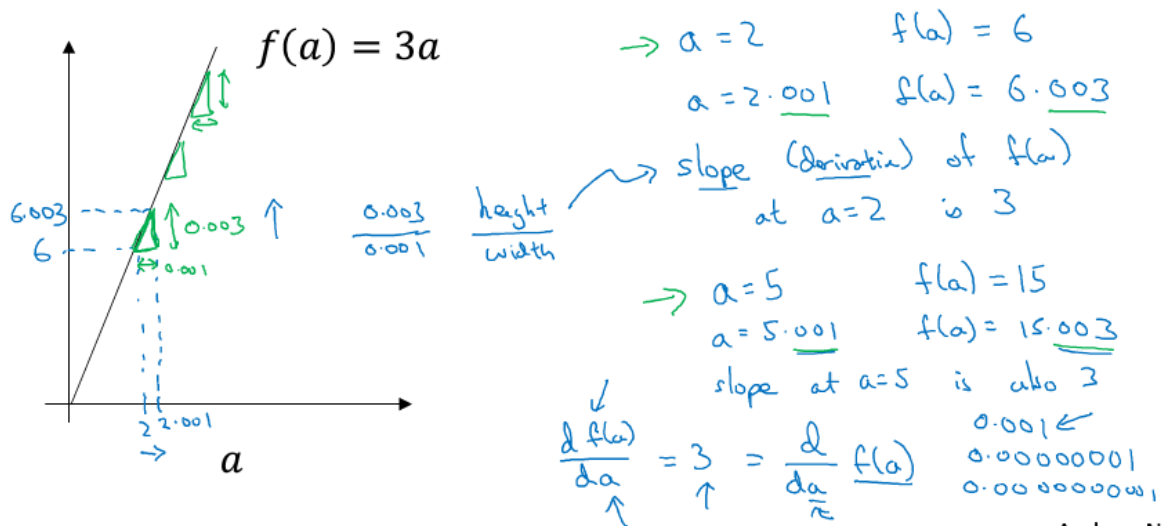 f(a) = 3a
6.003
6
0.003
0.001
2 2.001
a
0.003 height
0.001 width
→ a = 2 f(a) = 6
a = 2.001 f(a) = 6.003
slope (derivative) of f(a)
at a=2 is 3
→ a = 5 f(a) = 15
a = 5.001 f(a) = 15.003
slope at a=5 is also 3
d f(a) / da = 3 = d / da f(a)
0.001 ←
0.00000001
0.0000000001